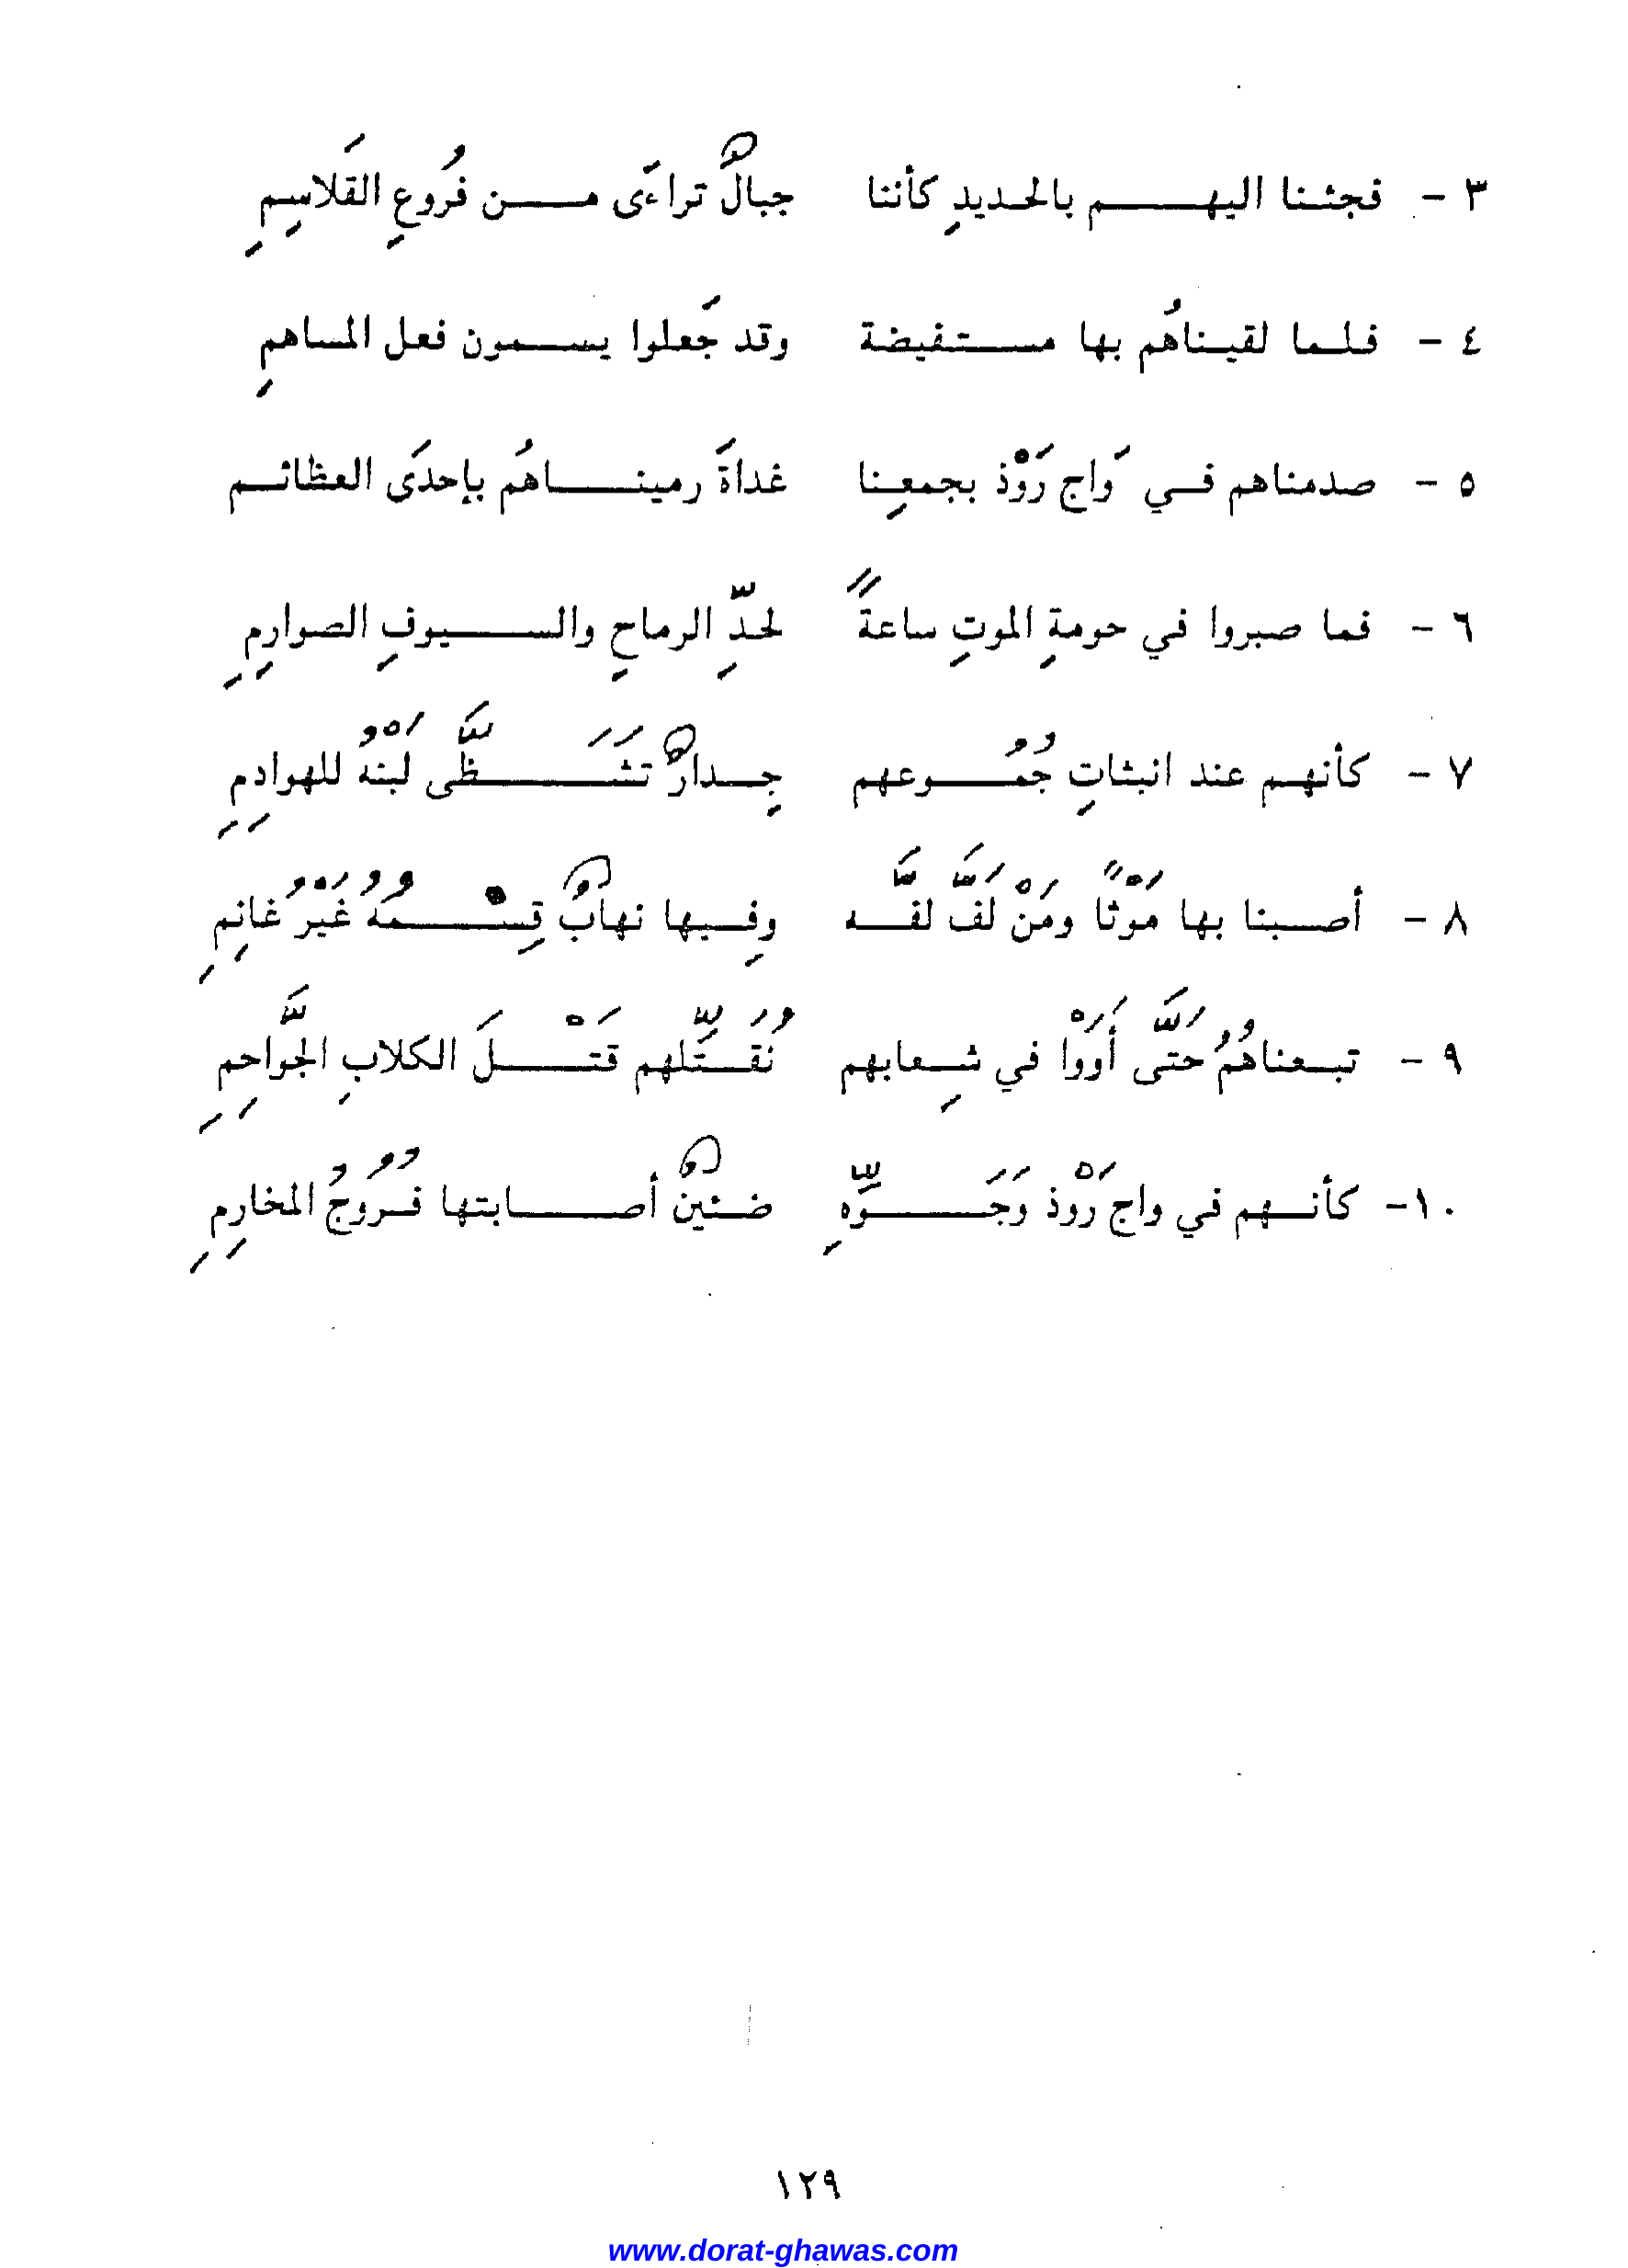 ٣ - فجئنا اليهم بالحديدِ كأننا جبالٌ تراءَى من فُروعِ القَلاسِمِ
٤ - فلما لقيناهُم بها مستفيضة وقد جَعلوا يسمون فعل المساهمِ
٥ - صدمناهم في وَاج رَوْذ بجمعِنا غداةَ رميناهُم بإحدَى العظائم
٦ - فما صبروا في حومةِ الموتِ ساعةً لحدِّ الرماحِ والسيوفِ الصوارِمِ
٧ - كأنهم عند انبثاتِ جُمُوعهم جِدارٌ تَشَظَّى لَبْنهُ للهوادِمِ
٨ - أصبنا بها مَوْتًا ومَنْ لَفَّ لفَّه وفِيها نهابٌ قِسْمُهُ غَيْرُ غانِمِ
٩ - تبعناهُمُ حَتَّى أَوَوْا في شِعابهم نُقَتِّلهم قَتْلَ الكلابِ الجَّواحِمِ
١٠- كأنهم في واج رَوْذ وَجَوِّهِ ضئينٌ أصابتها فُرُوجُ المخارِمِ
١٢٩
www.dorat-ghawas.com